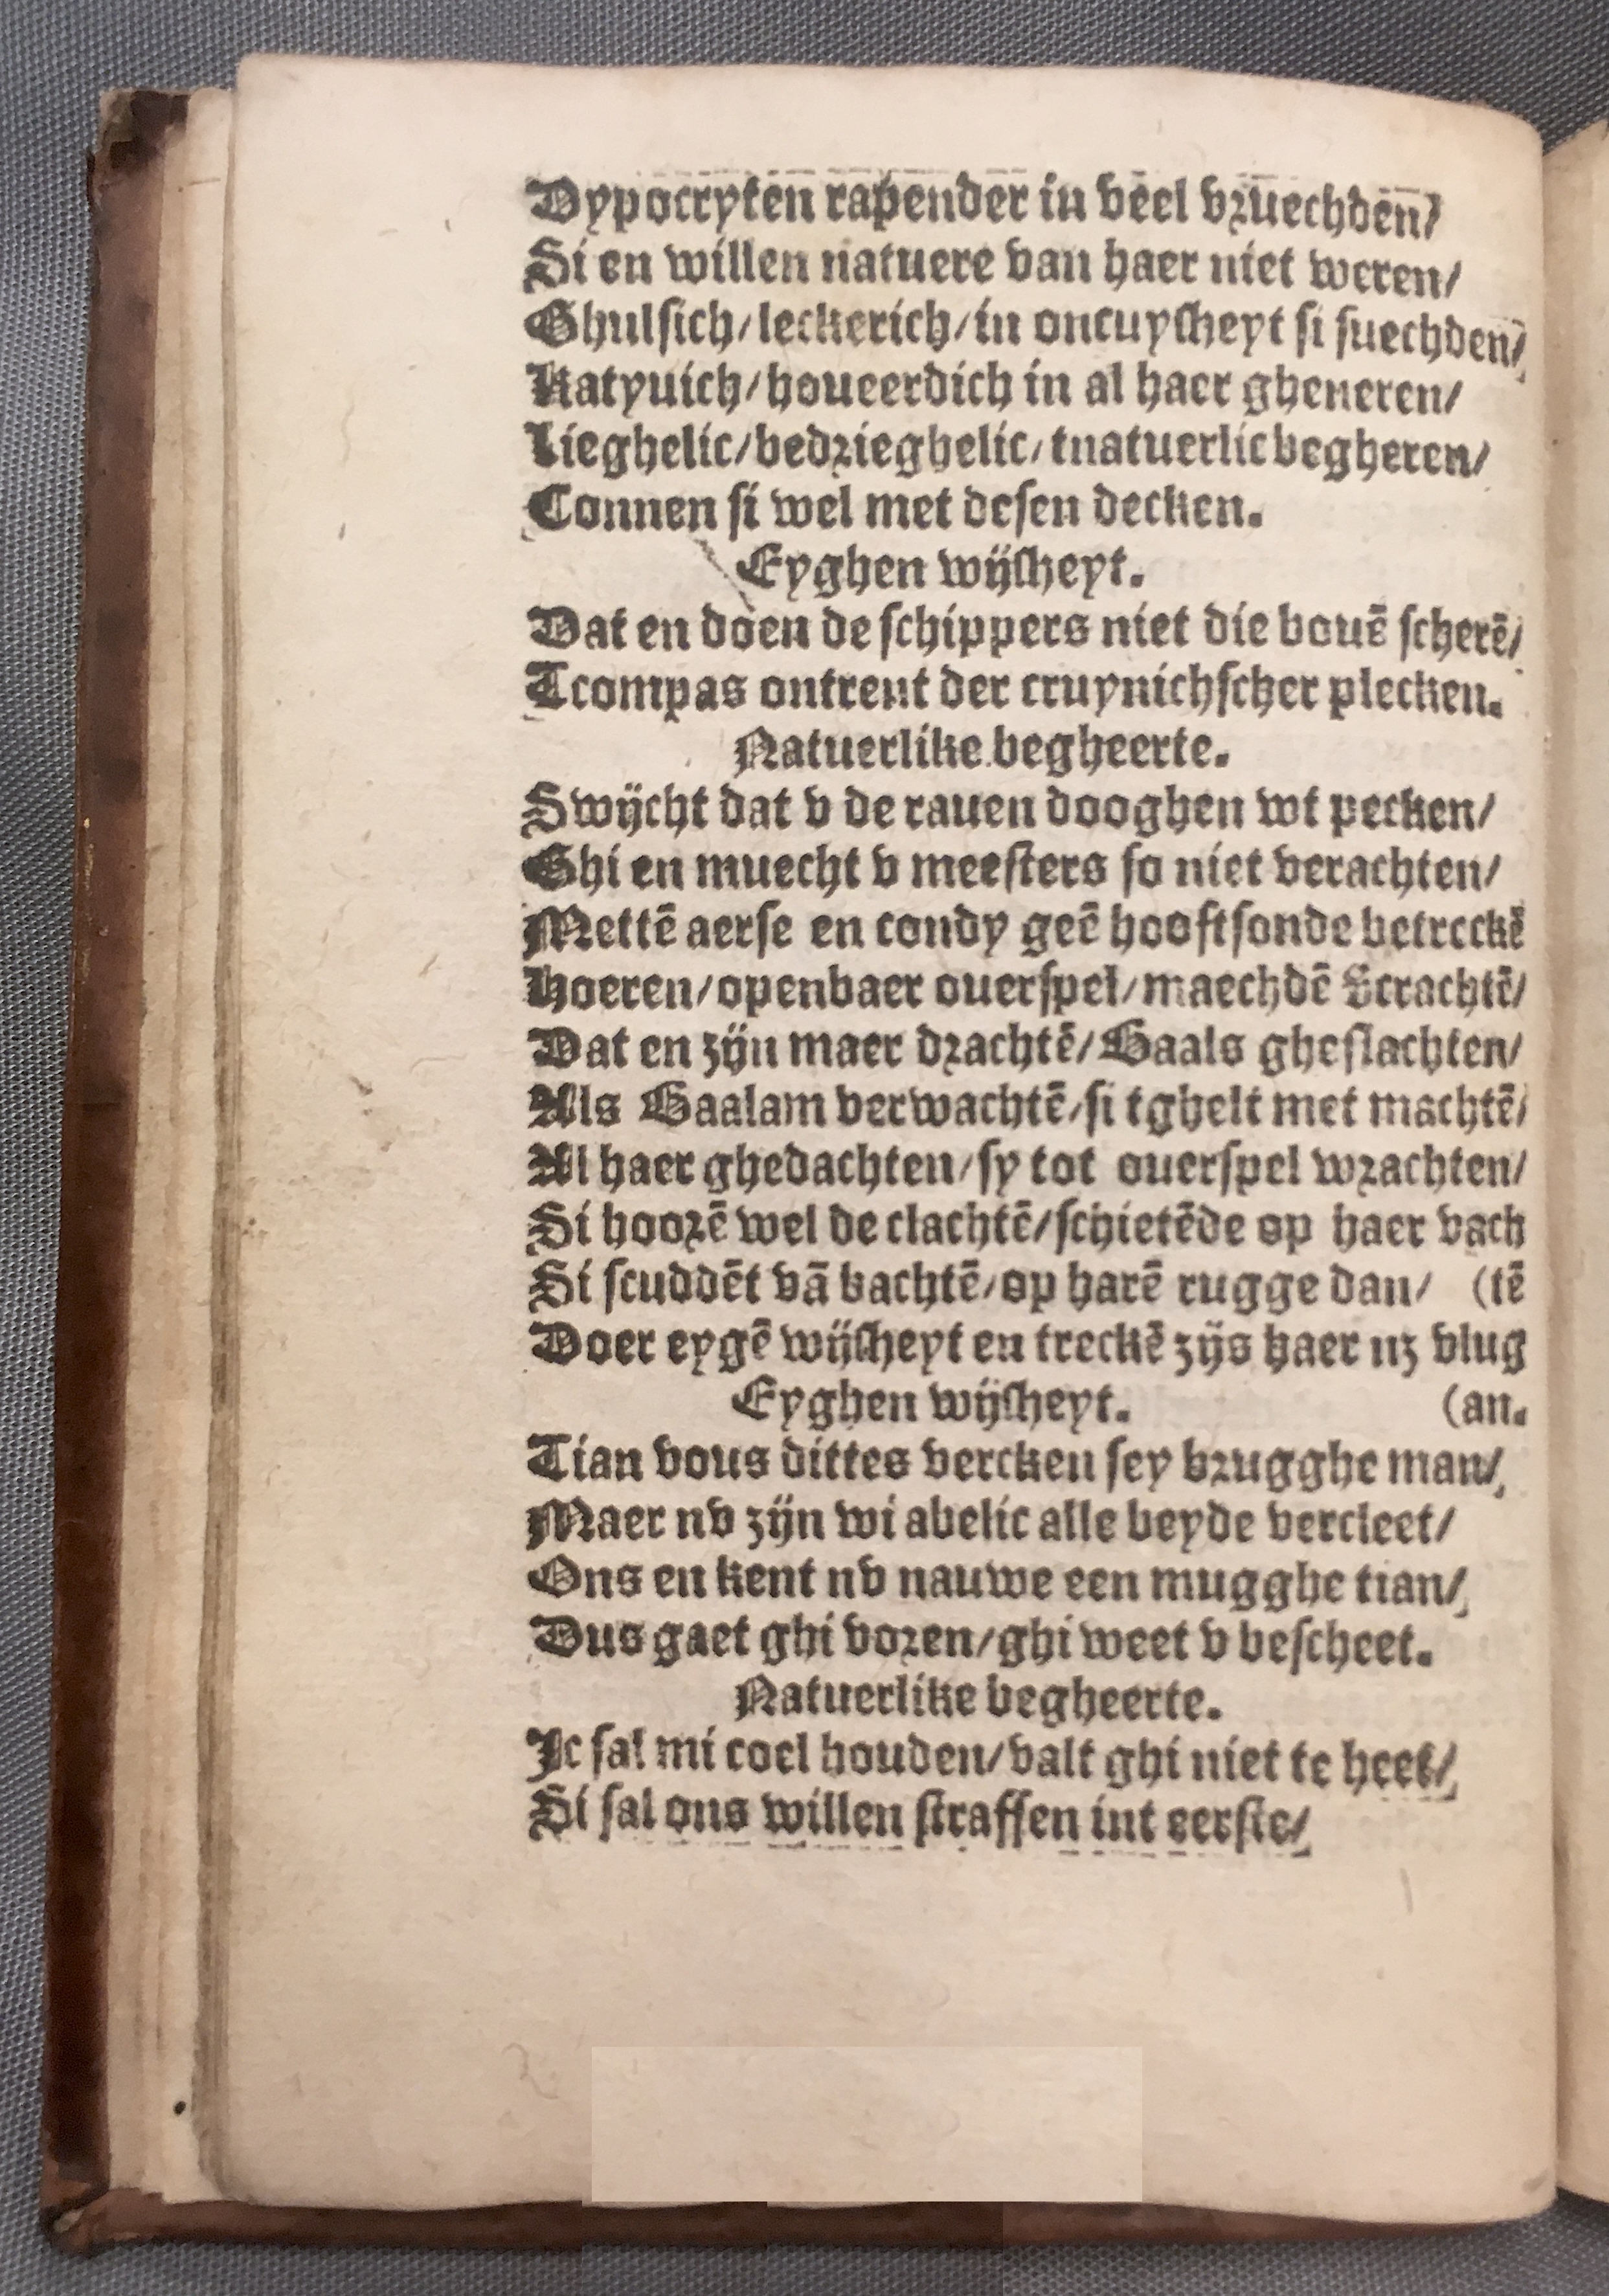 Dypocryten rapender in veel vruechden/
Si en willen natuere van haer niet weren/
Ghulsich/leckerich/in oncuysheyt si suechden/
Katyuich/houeerdich in al haer gheneren/
Lieghelic/bedrieghelic/tnatuerlic begheren/
Connen si wel met desen decken.
Eyghen wijsheyt.
Dat en doen de schippers niet die bouē scherē/
Tcompas ontrent der cruynichscher plecken.
Natuerlike begheerte.
Swijcht dat v de rauen dooghen wt pecken/
Ghi en muecht v meesters so niet verachten/
Mettē aerse en condy geē hooftsonde betreckē
Hoeren/openbaer ouerspel/maechdē crachtē/
Dat en zijn maer drachtē/Baals gheslachten/
Als Baalam verwachtē/si tghelt met machtē/
Al haer ghedachten/sy tot ouerspel wrachten/
Si hoorē wel de clachtē/schietēde op haer vach
Si scuddēt vā bachtē/op harē rugge dan/ (tē
Doer eygē wijsheyt en treckē zijs haer nz vlug
Eyghen wijsheyt. (an.
Tian vous dittes vercken sey brugghe man/
Maer nv zijn wi abelic alle beyde vercleet/
Ons en kent nv nauwe een mugghe tian/
Dus gaet ghi voren/ghi weet v bescheet.
Natuerlike begheerte.
Ic sal mi coel houden/valt ghi niet te heet/
Si sal ons willen straffen int eerste/